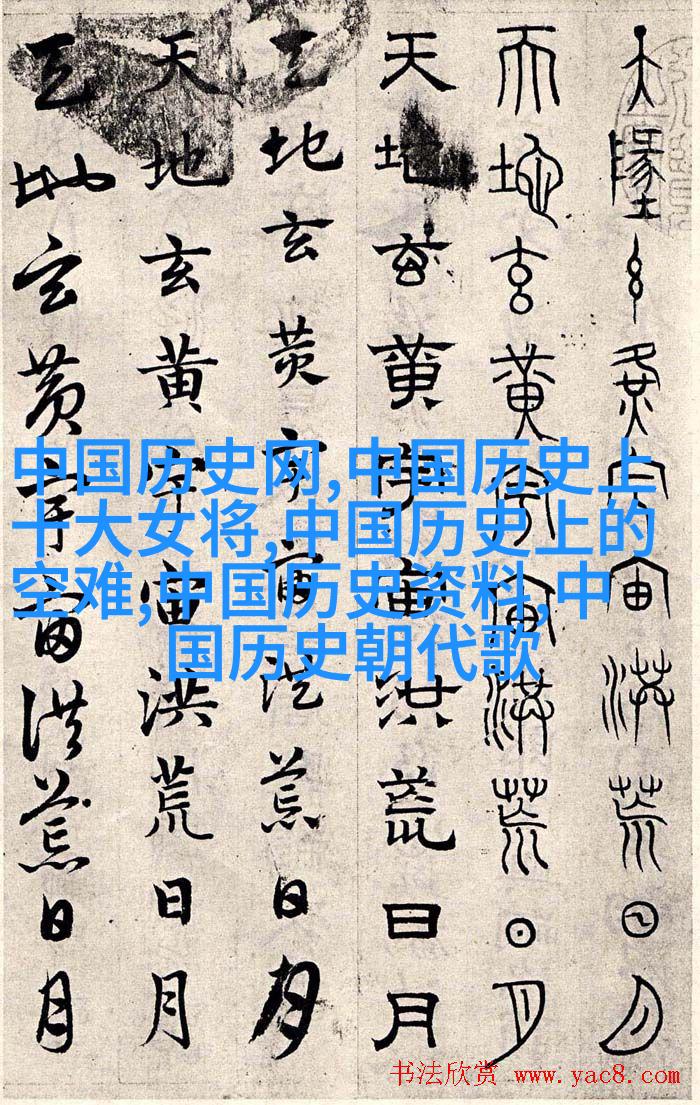 天地玄黄宇宙洪荒日月
天地玄黄宇宙洪荒日月
天地玄黄宇宙洪荒日月
天地玄黄宇宙洪荒日月
天地玄黄宇宙洪荒日月
天地玄黄宇宙洪荒日月
中国历史网,中国历史上
十大女将,中国历史上的
空难,中国历史资料,中
国历史朝代歌
书法欣赏 www.yac8.com